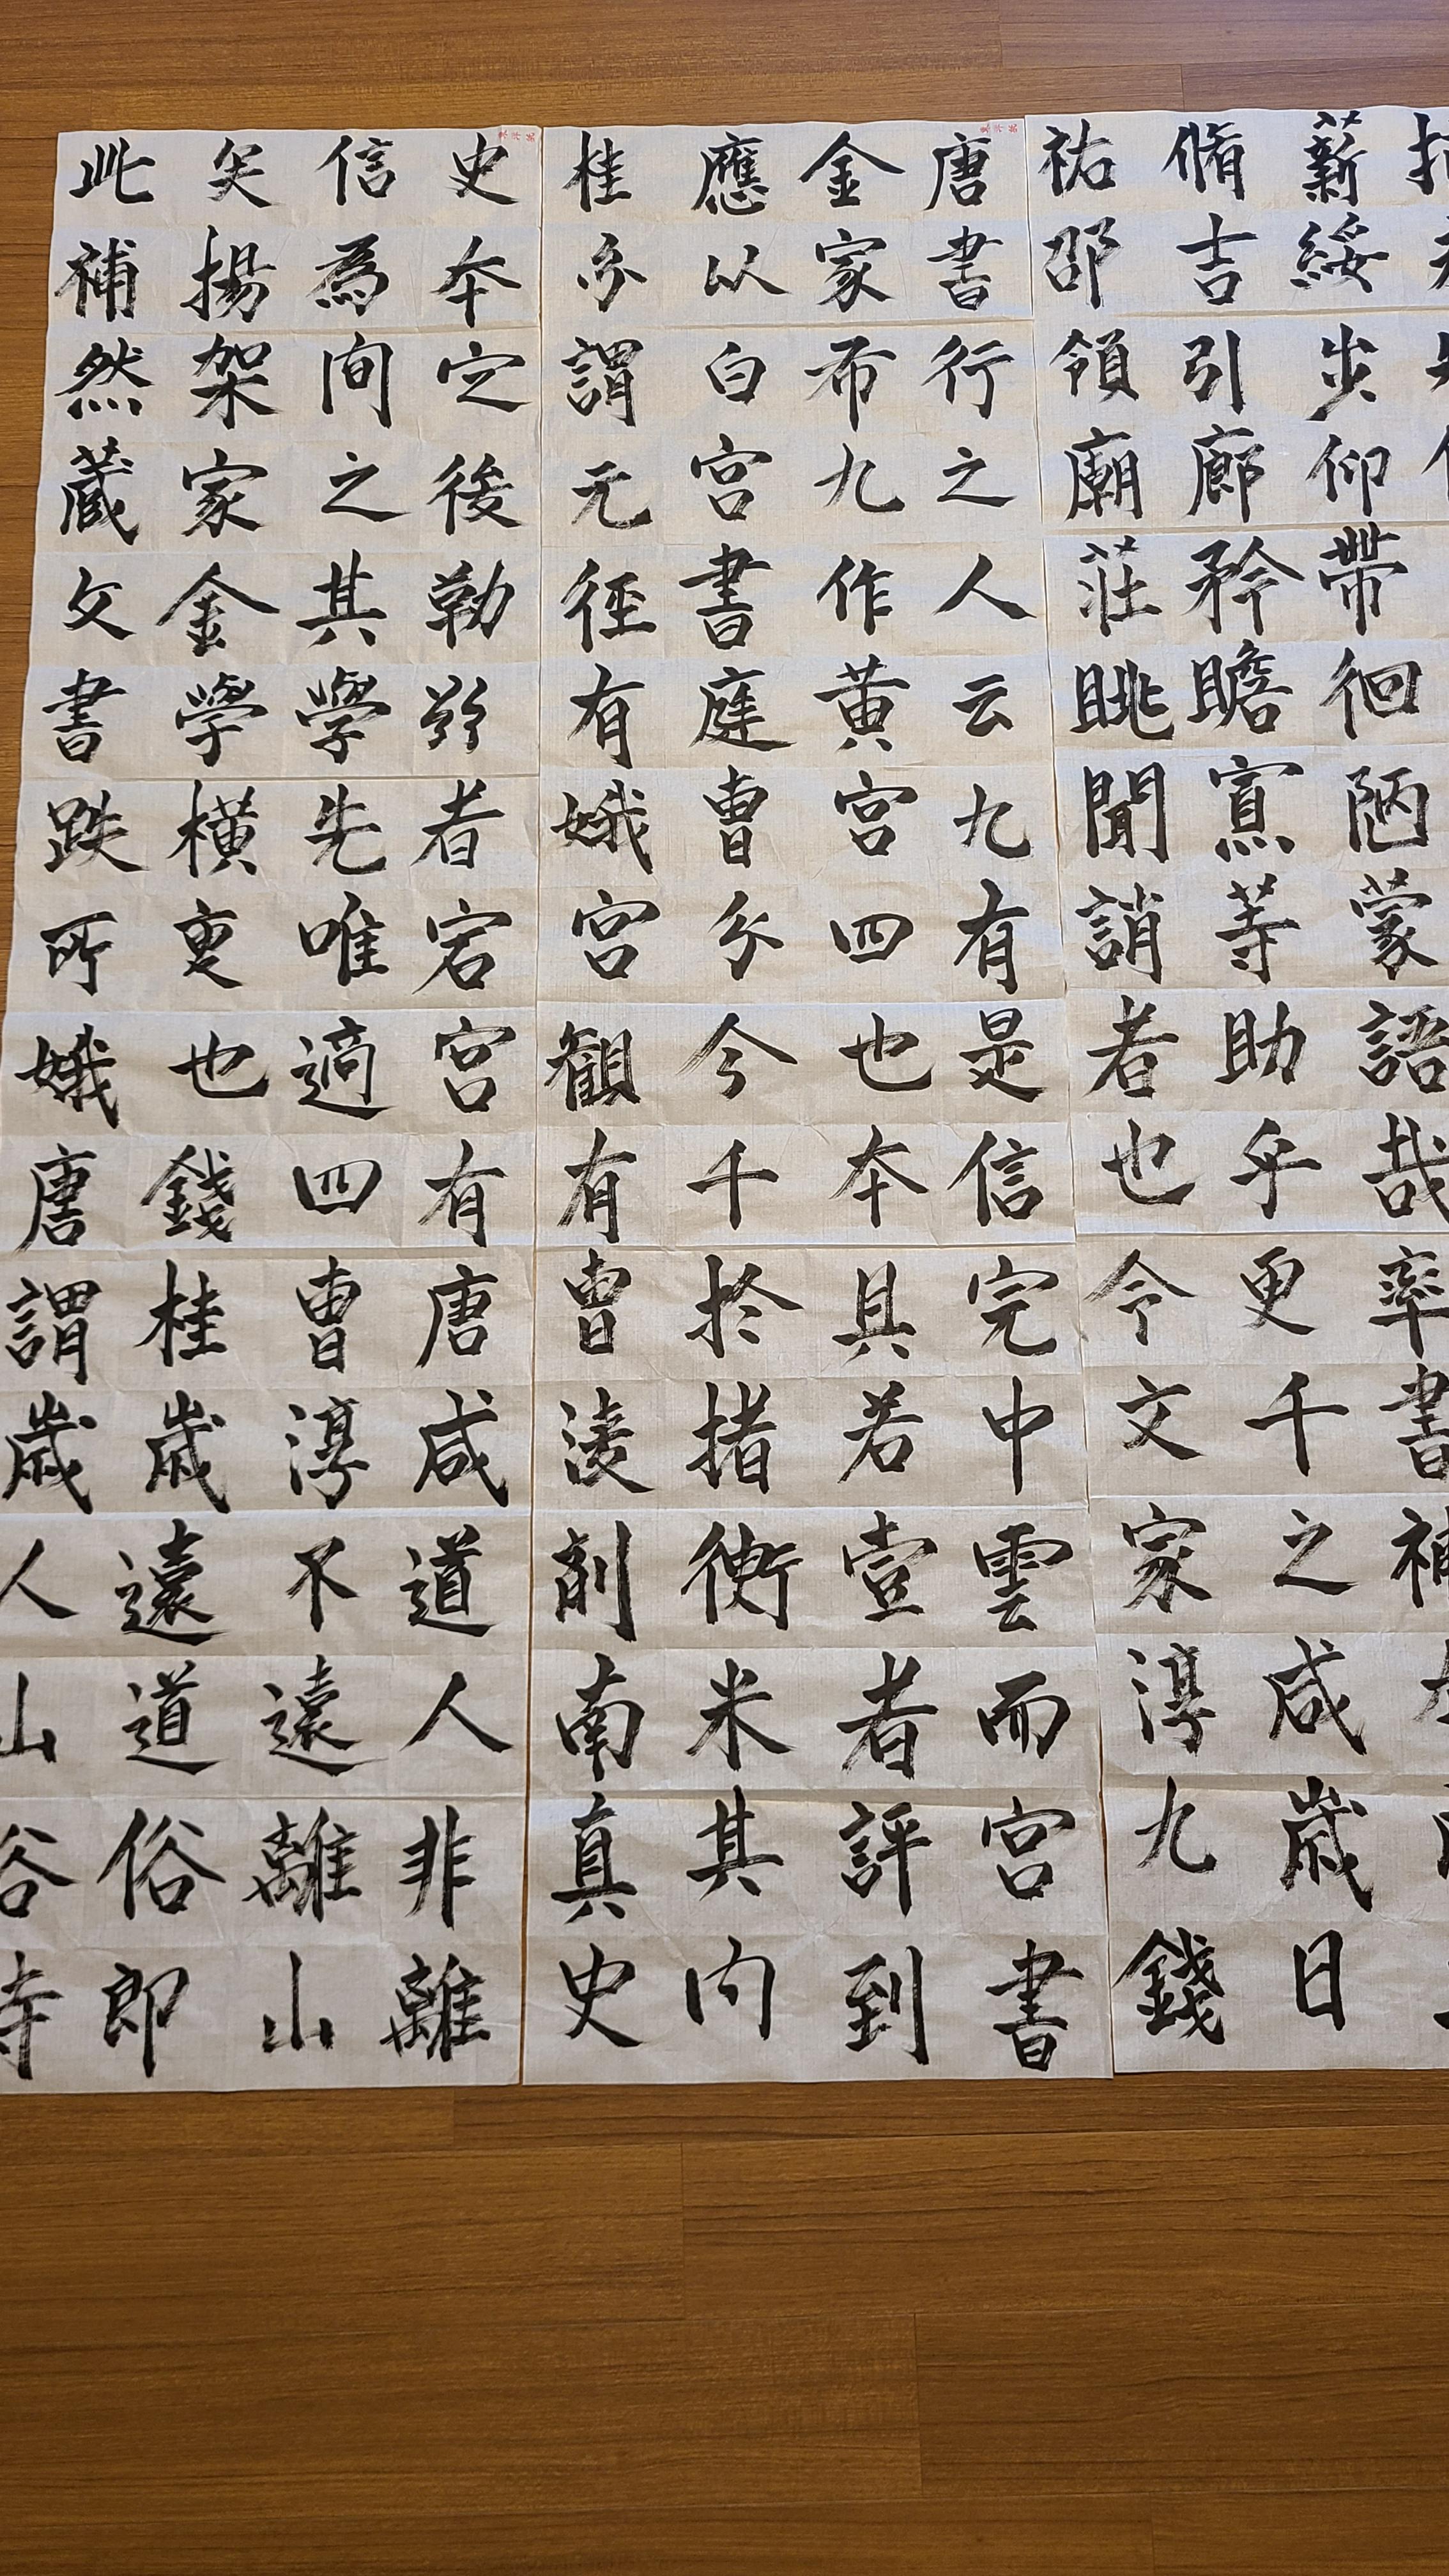 指薪脩祜
綏吉邵
步引領
仰廊廟
帶矜莊
徊瞻眺
陋寡聞
蒙等誚
語助者
哉乎也
率更令
書千文
補之家
咸淳
歲九
日錢
唐金應桂
書家以分
行布白謂
之九宮元
人作書徑
云黃庭有
九宮曹娥
有四分宮
是也今觀
信本千有
完具於曹
中若措淩
雲壹衡剡
而者米南
宮評其真
書到內史
史信矣此
本為揚補
定間架然
後之家藏
勒其金文
學學書
者先橫跌
宕唯更所
宮適也娥
有四錢唐
唐曹桂謂
咸淳歲歲
道不遠人
人遠道山
非離俗谷
離山即寺